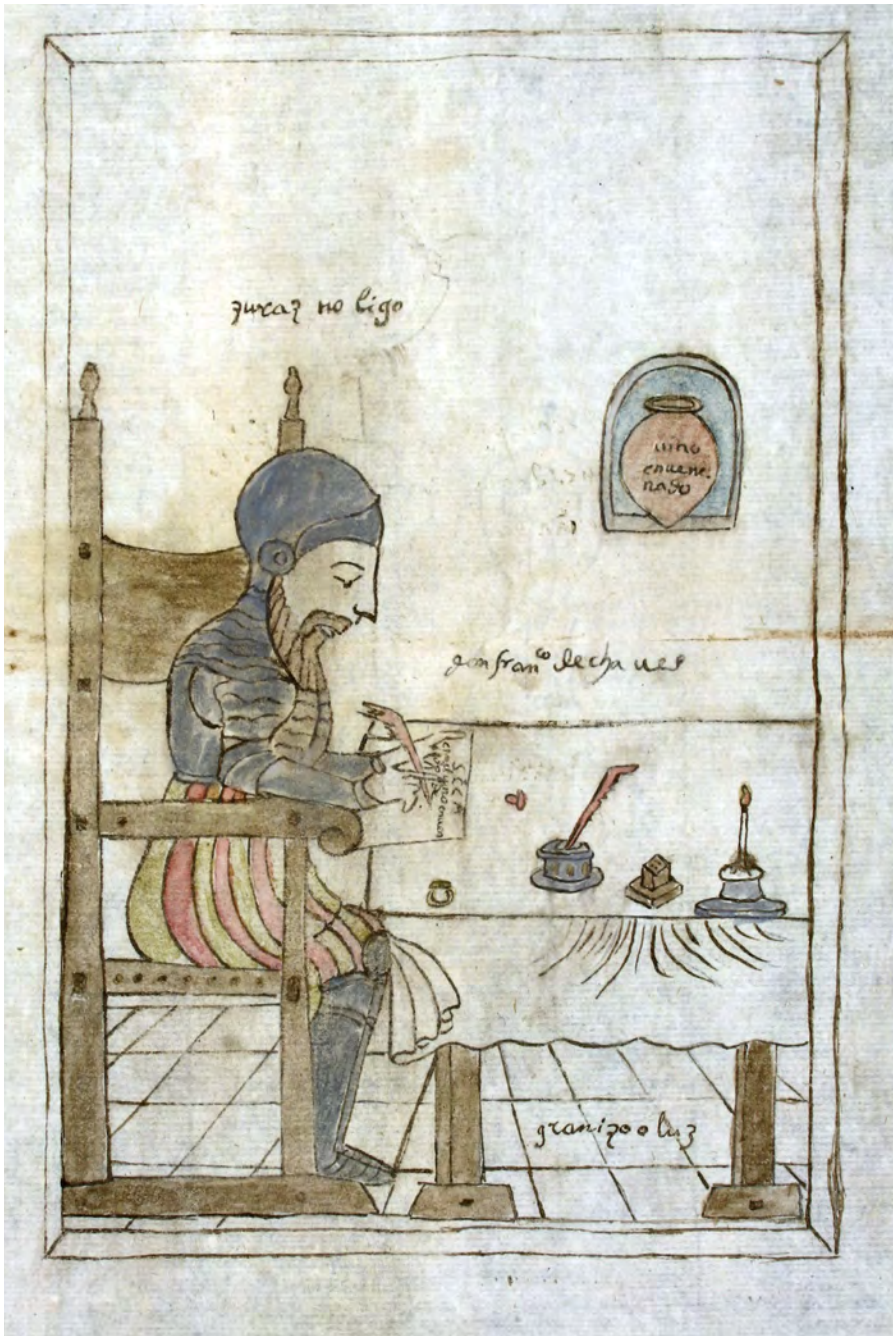 zuraz no ligo
uino
enuene.
nado
don fran.co de cha ues
S C C M
granizo o luz